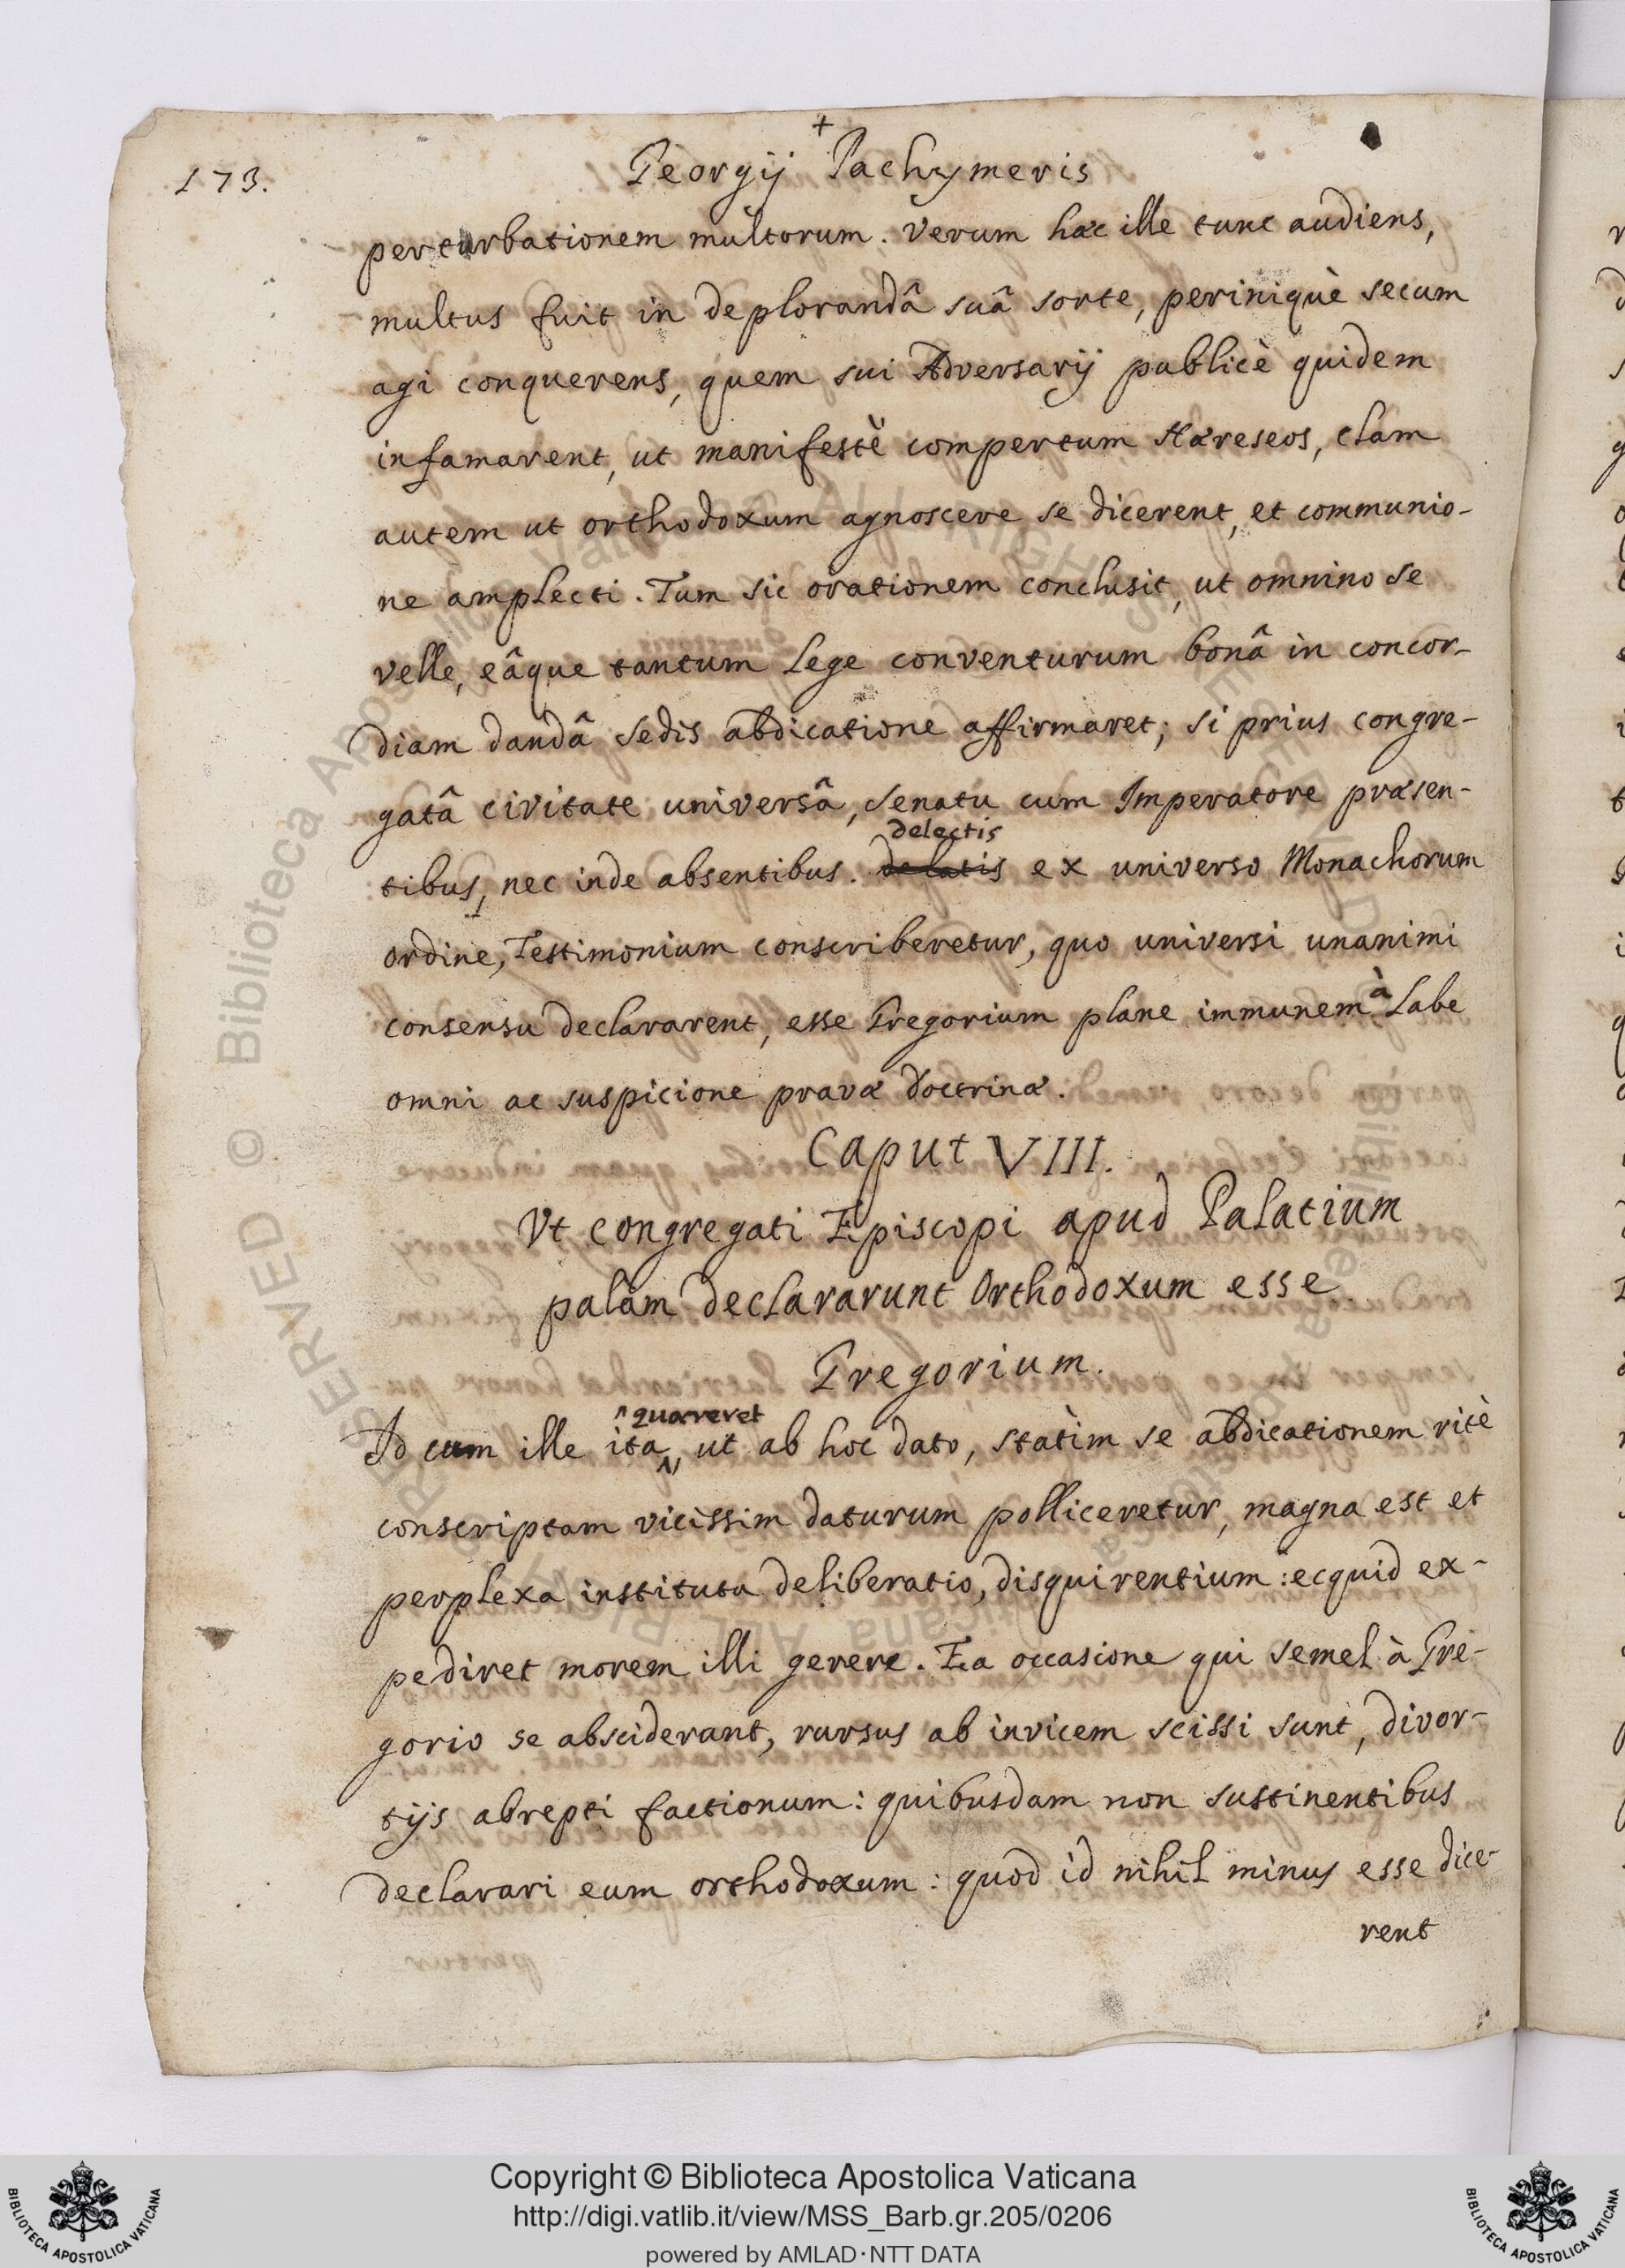 173.
+
Georgij Pachymeris
perturbationem multorum. Verum hæc ille tunc audiens,
multus fuit in deplorandâ suâ sorte, periniquè secum
agi conquerens, quem sui Adversarij publicè quidem
infamarent, ut manifestè compertum Hæreseos, clam
autem ut orthodoxum agnoscere se dicerent, et communio-
ne amplecti. Tum sic orationem conclusit, ut omnino se
velle, eâque tantum lege conventurum bonâ in concor-
diam dandâ sedis abdicatione affirmaret; si prius congre-
gatâ civitate universâ, senatu cum Imperatore præsen-
delectis
tibus, nec inde absentibus. delatis ex universo Monachorum
ordine, Testimonium conscriberetur, quo universi unanimi
consensu declararent, esse Gregorium plane immunem à labe
omni ac suspicione pravæ doctrinæ.
Caput VIII.
Vt congregati Episcopi apud Palatium
palàm declararunt Orthodoxum esse
Gregorium.
^quæreret
Id cum ille ita, ut ab hoc dato, statìm se abdicationem ritè
conscriptam vicissim daturum polliceretur, magna est et
perplexa instituta deliberatio, disquirentium: ecquid ex-
pediret morem illi gerere. Ea occasione qui semel à Gre-
gorio se absciderant, rursus ab invicem scissi sunt, divor-
tijs abrepti factionum: quibusdam non sustinentibus
declarari eum orthodoxum: quod id nihil minus esse dice-
rent
Copyright © Biblioteca Apostolica Vaticana
http://digi.vatlib.it/view/MSS_Barb.gr.205/0206
powered by AMLAD·NTT DATA
BIBLIOTECA APOSTOLICA VATICANA
BIBLIOTECA APOSTOLICA VATICANA